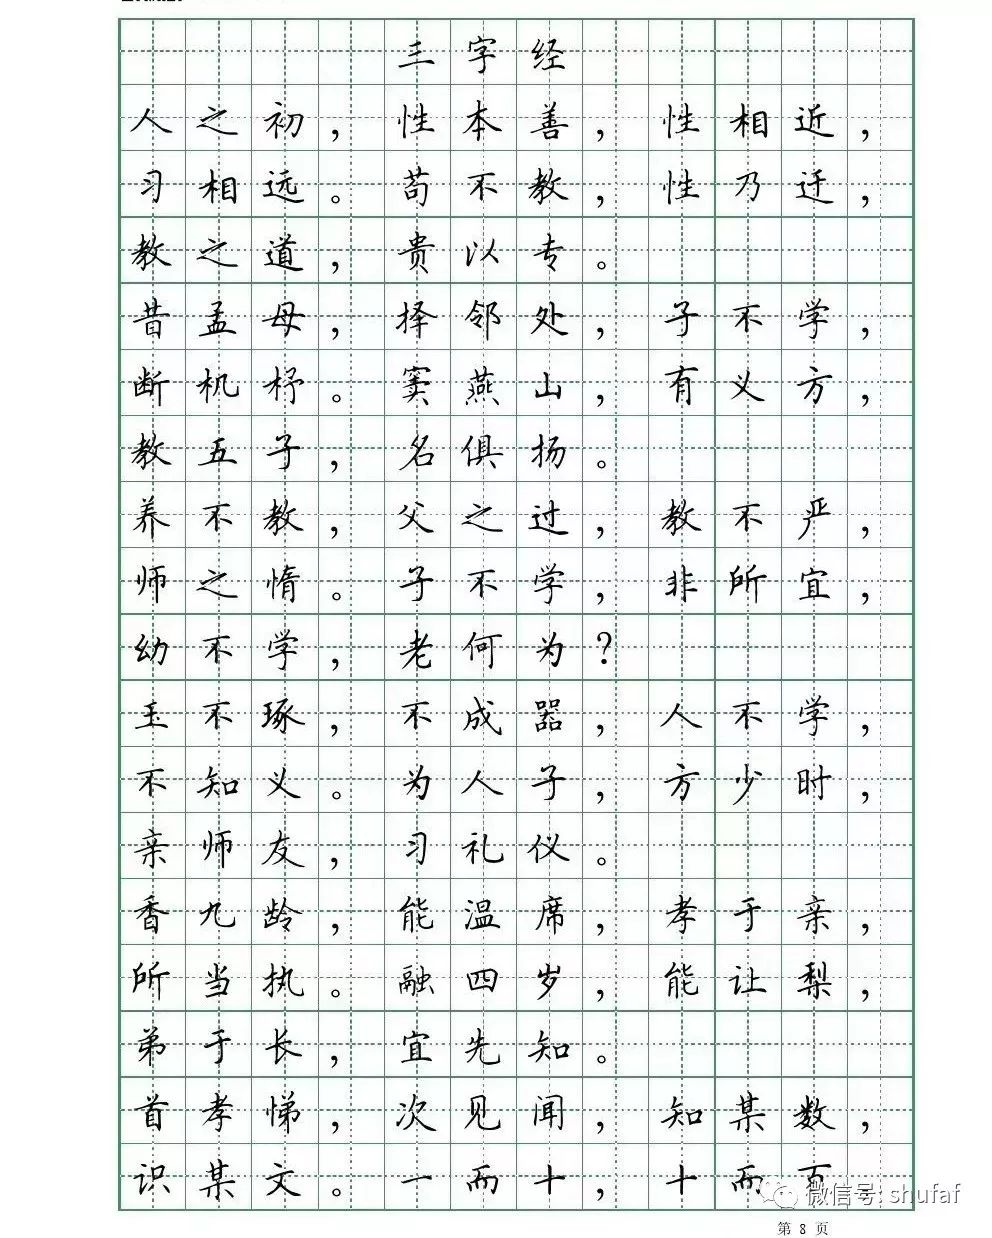 三字经
人之初，性本善，性相近，
习相远。苟不教，性乃迁，
教之道，贵以专。
昔孟母，择邻处，子不学，
断机杼。窦燕山，有义方，
教五子，名俱扬。
养不教，父之过，教不严，
师之惰。子不学，非所宜，
幼不学，老何为？
玉不琢，不成器，人不学，
不知义。为人子，方少时，
亲师友，习礼仪。
香九龄，能温席，孝于亲，
所当执。融四岁，能让梨，
弟于长，宜先知。
首孝悌，次见闻，知某数，
识某文。一而十，十而百
微信号: shufaf
第 8 页